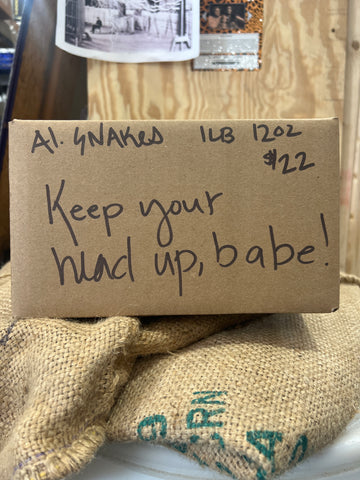 A1. SNAKES 1LB 12OZ
$22
Keep your
head up, babe!
RN
A